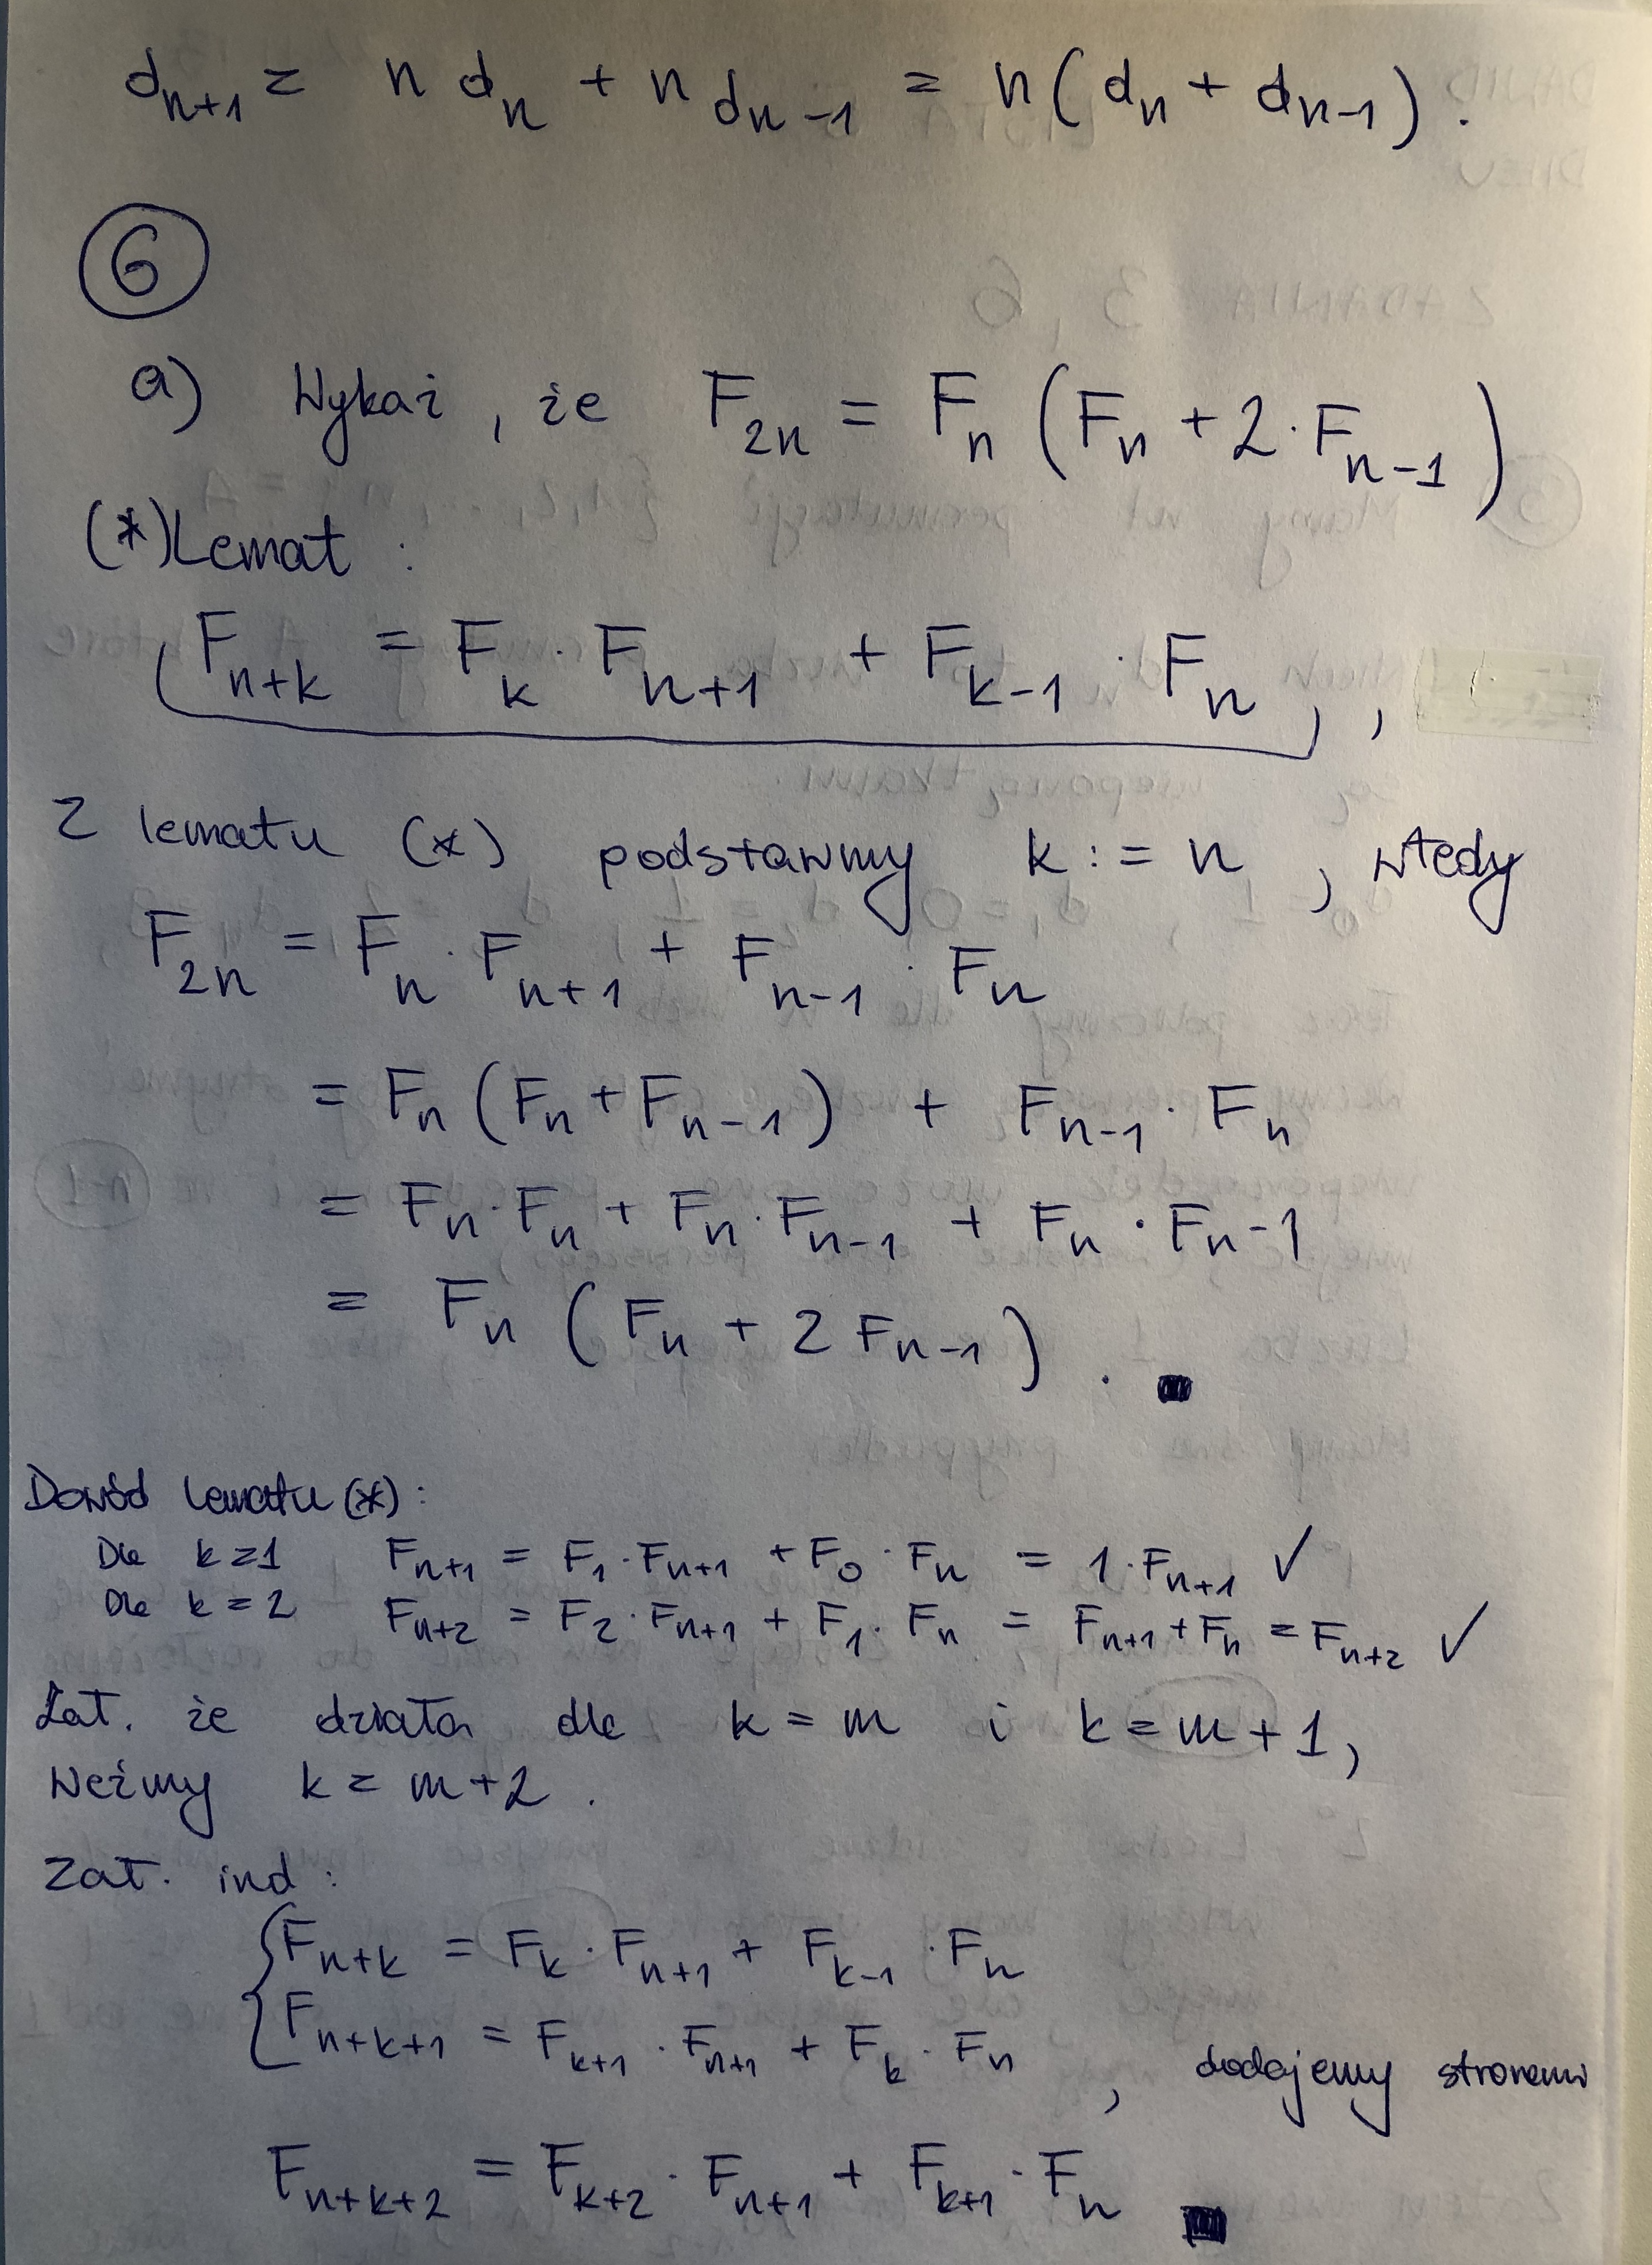 d_{n+1} = n d_n + n d_{n-1} = n(d_n + d_{n-1}).
6
a) Wykaż, że F_{2n} = F_n (F_n + 2·F_{n-1})
(*) Lemat:
F_{n+k} = F_k · F_{n+1} + F_{k-1} · F_n ,
Z lematu (*) podstawmy k := n, wtedy
F_{2n} = F_n · F_{n+1} + F_{n-1} · F_n
= F_n (F_n + F_{n-1}) + F_{n-1} · F_n
= F_n · F_n + F_n · F_{n-1} + F_n · F_{n-1}
= F_n (F_n + 2 F_{n-1}). ■
Dowód lematu (*):
Dla k=1 F_{n+1} = F_1 · F_{n+1} + F_0 · F_n = 1 · F_{n+1} ✓
Dla k=2 F_{n+2} = F_2 · F_{n+1} + F_1 · F_n = F_{n+1} + F_n = F_{n+2} ✓
Zał. że działa dla k = m i k = m+1,
weźmy k = m+2.
Zał. ind:
F_{n+k} = F_k · F_{n+1} + F_{k-1} · F_n
F_{n+k+1} = F_{k+1} · F_{n+1} + F_k · F_n , dodajemy stronami
F_{n+k+2} = F_{k+2} · F_{n+1} + F_{k+1} · F_n ■